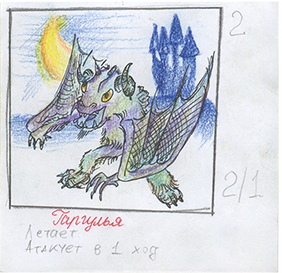 2
2/1
Гаргулья
Летает
Атакует в 1 ход